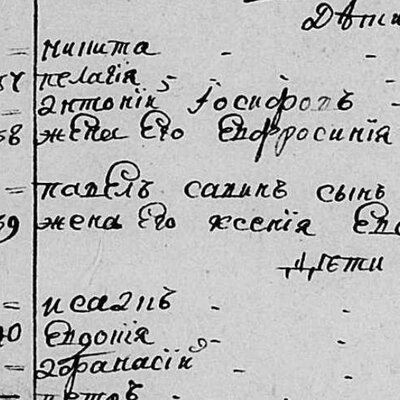 Дѣти
никита
пелагія
антоніи іосифовъ
58 жена его евфросинія
павелъ савинъ сынъ
59 жена его ксенія
Дѣти
исаакъ
евдокія
афанасіи
петръ